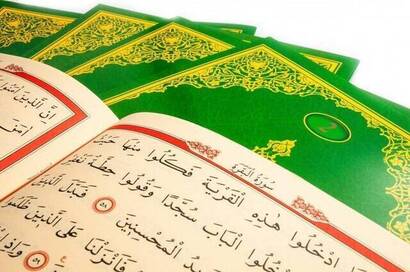 ٢
إِنَّ الَّذِينَ
سُورَةُ البَقَرَةِ
ادْخُلُوا هَٰذِهِ الْقَرْيَةَ فَكُلُوا مِنْهَا
الْبَابَ سُجَّدًا وَقُولُوا حِطَّةٌ
الْمُحْسِنِينَ ٥٨ فَبَدَّلَ الَّذِينَ
فَأَنْزَلْنَا عَلَى الَّذِينَ
٥٩